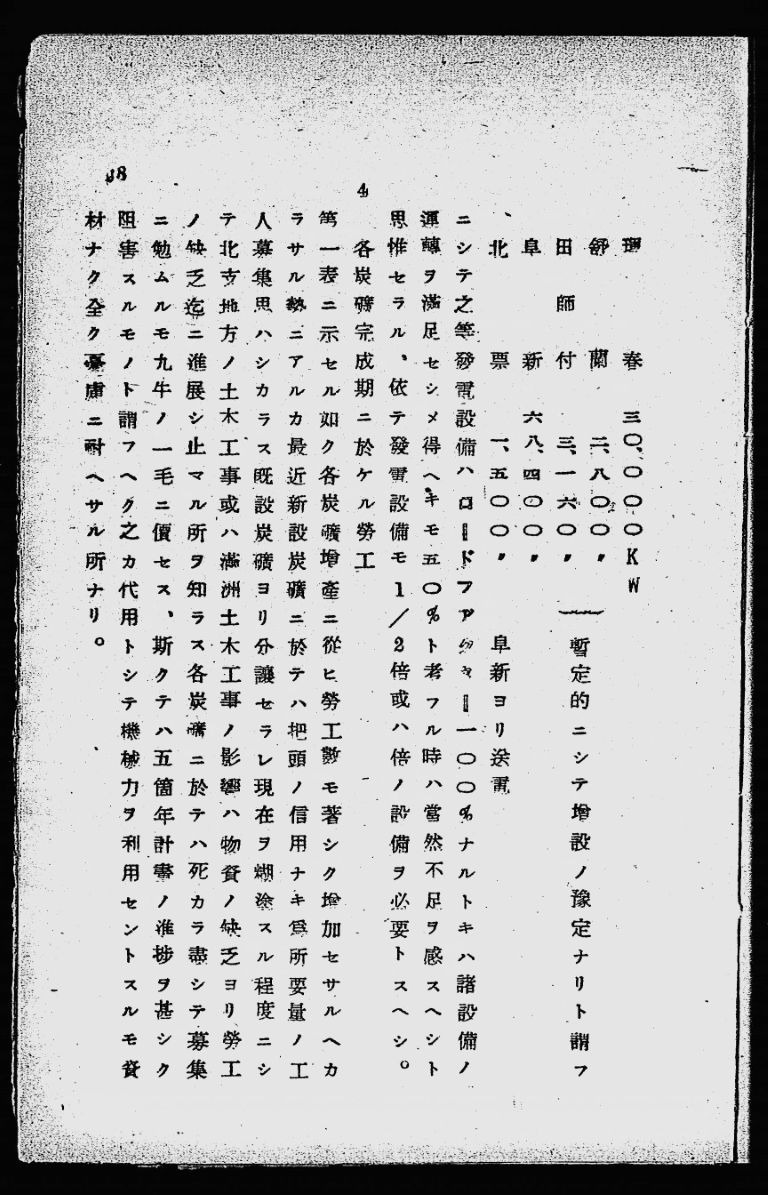 琿春 三〇、〇〇〇KW
舒蘭 二、八〇〇〃
田師付 三、一六〇〃 暫定的ニシテ增設ノ豫定ナリト謂フ
阜新 六八、四〇〇〃
北票 一、五〇〇〃 阜新ヨリ送電
ニシテ之等發電設備ハロードファクター一〇〇%ナルトキハ諸設備ノ
運轉ヲ滿足セシメ得ヘキモ五〇%ト考フル時ハ當然不足ヲ感スヘシト
思惟セラル、依テ發電設備モ1/2倍或ハ倍ノ設備ヲ必要トスヘシ。
4 各炭礦完成期ニ於ケル勞工
第一表ニ示セル如ク各炭礦增產ニ從ヒ勞工數モ著シク增加セサルヘカ
ラサル勢ニアルカ最近新設炭礦ニ於テハ把頭ノ信用ナキ爲所要量ノ工
人募集思ハシカラス既設炭礦ヨリ分讓セラレ現在ヲ糊塗スル程度ニシ
テ北支地方ノ土木工事或ハ滿洲土木工事ノ影響ハ物資ノ缺乏ヨリ勞工
ノ缺乏迄ニ進展シ止マル所ヲ知ラス各炭礦ニ於テハ死カラ盡シテ募集
ニ勉ムルモ九牛ノ一毛ニ價セス、斯クテハ五箇年計畫ノ進捗ヲ甚シク
阻害スルモノト謂フヘク之カ代用トシテ機械力ヲ利用セントスルモ資
材ナク全ク憂慮ニ耐ヘサル所ナリ。